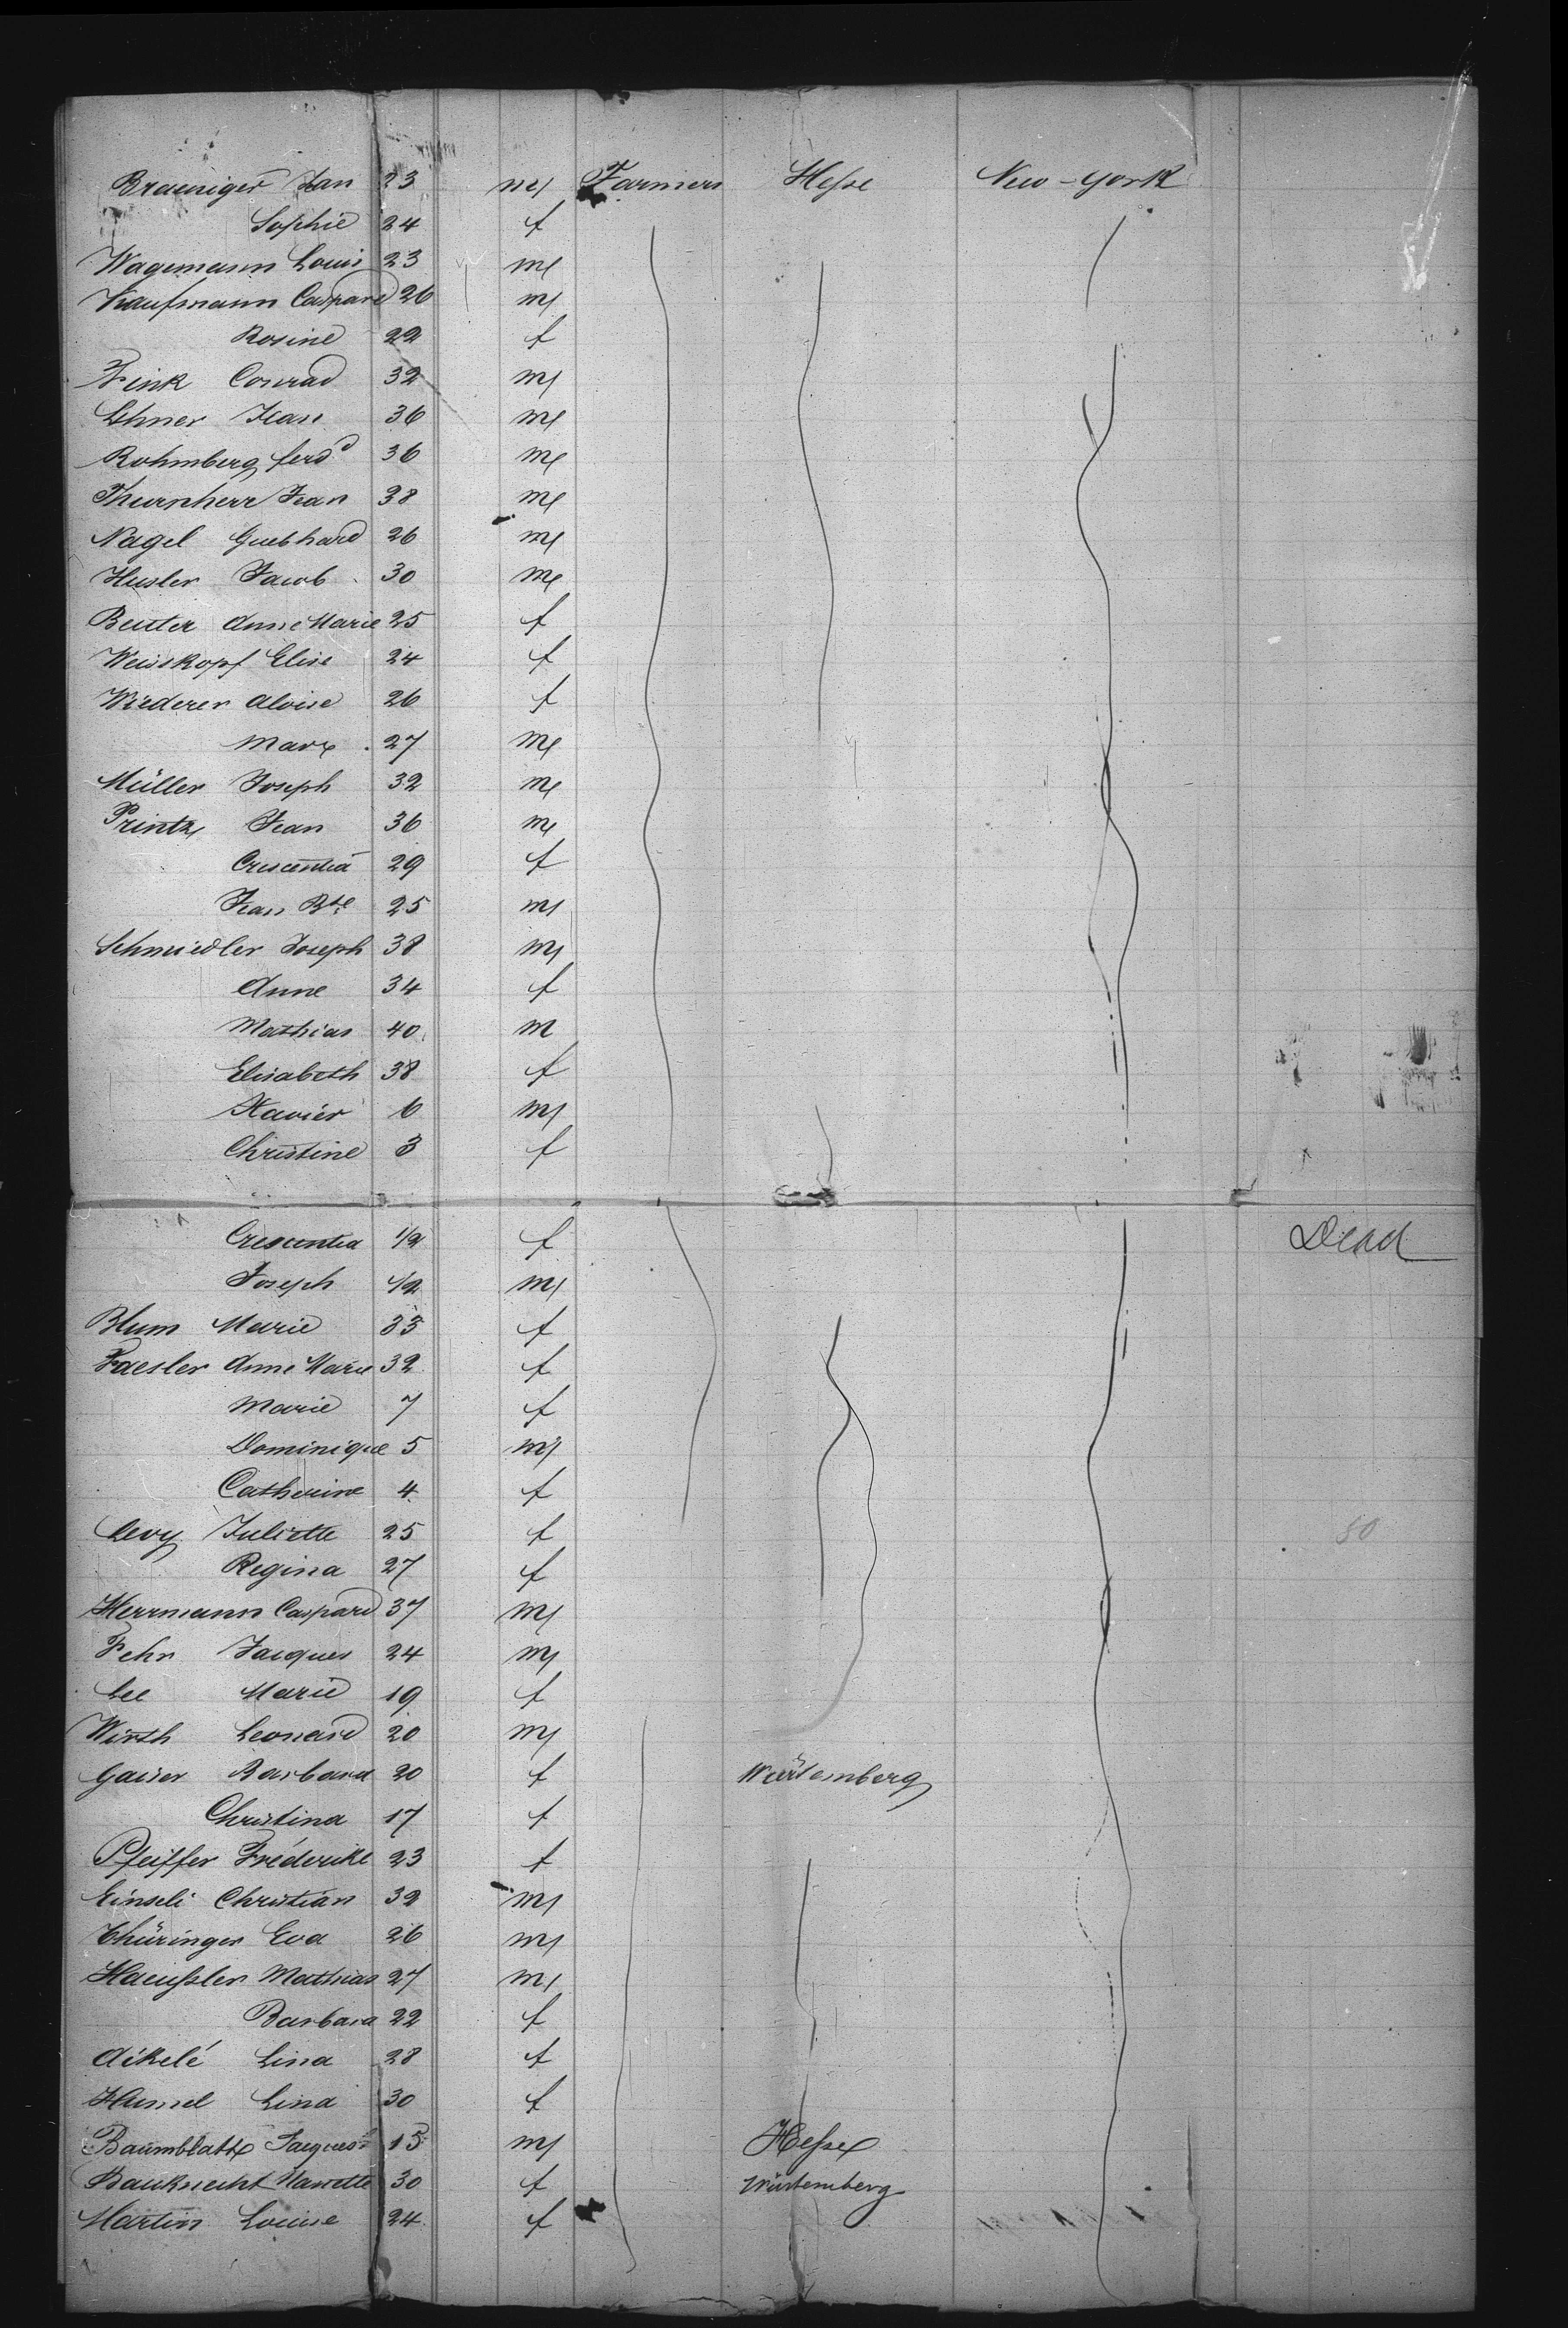 Braeuniger Jean 23 m Farmers Hesse New-York
Sophie 24 f
Wagemann Louis 23 m
Kaufmann Caspard 26 m
Rosine 22 f
Fink Conrad 32 m
Lehner Jean 36 m
Rohmberg ferd^d 36 m
Thurnherr Jean 38 m
Nagel Guebhard 26 m
Husler Jacob 30 m
Beuter Anne Marie 25 f
Weisskopf Elise 24 f
Wiederer Aloise 26 f
Marx 27 m
Müller Joseph 32 m
Printz Jean 36 m
Crescentia 29 f
Jean Bte 25 m
Schmiedler Joseph 38 m
Anne 34 f
Mathias 40 m
Elisabeth 38 f
Xavier 6 m
Christine 3 f
Crescentia 1/2 f Dead
Joseph 1/2 m
Blum Marie 33 f
Faesler Anne Marie 32 f
Marie 7 f
Dominique 5 m
Catherine 4 f
Levy Juliette 25 f 50
Regina 27 f
Herrmann Caspard 37 m
Fehr Jacques 24 m
Lee Marie 19 f
Wirth Leonard 20 m
Gaiser Barbara 20 f Würtemberg
Christina 17 f
Pfeiffer Fréderike 23 f
Einseli Christian 32 m
Thüringer Eva 26 m
Haeussler Mathias 27 m
Barbara 22 f
Aikelé Lina 28 f
Humel Lina 30 f
Baumblatt Jacques 15 m Hesse
Bauknecht Nanette 30 f Würtemberg
Martin Louise 24 f